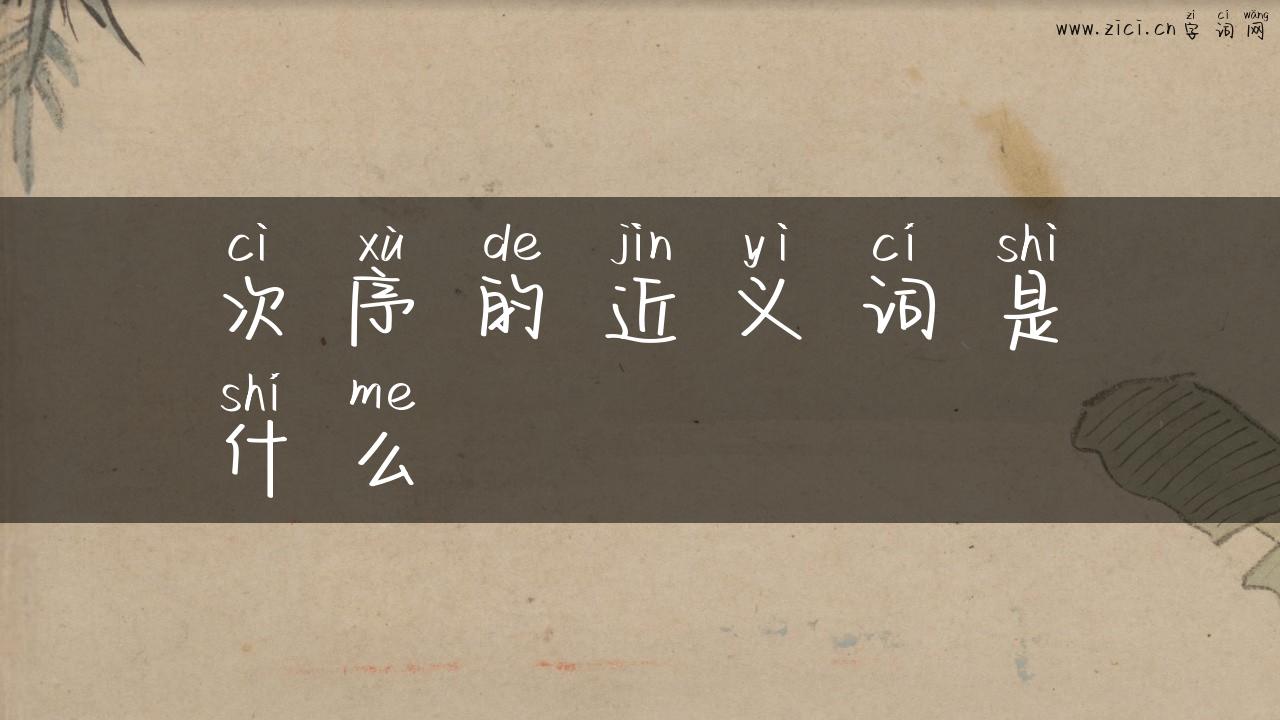 zì cí wǎng
www.zici.cn 字词网
cì xù de jìn yì cí shì
次序的近义词是
shí me
什么